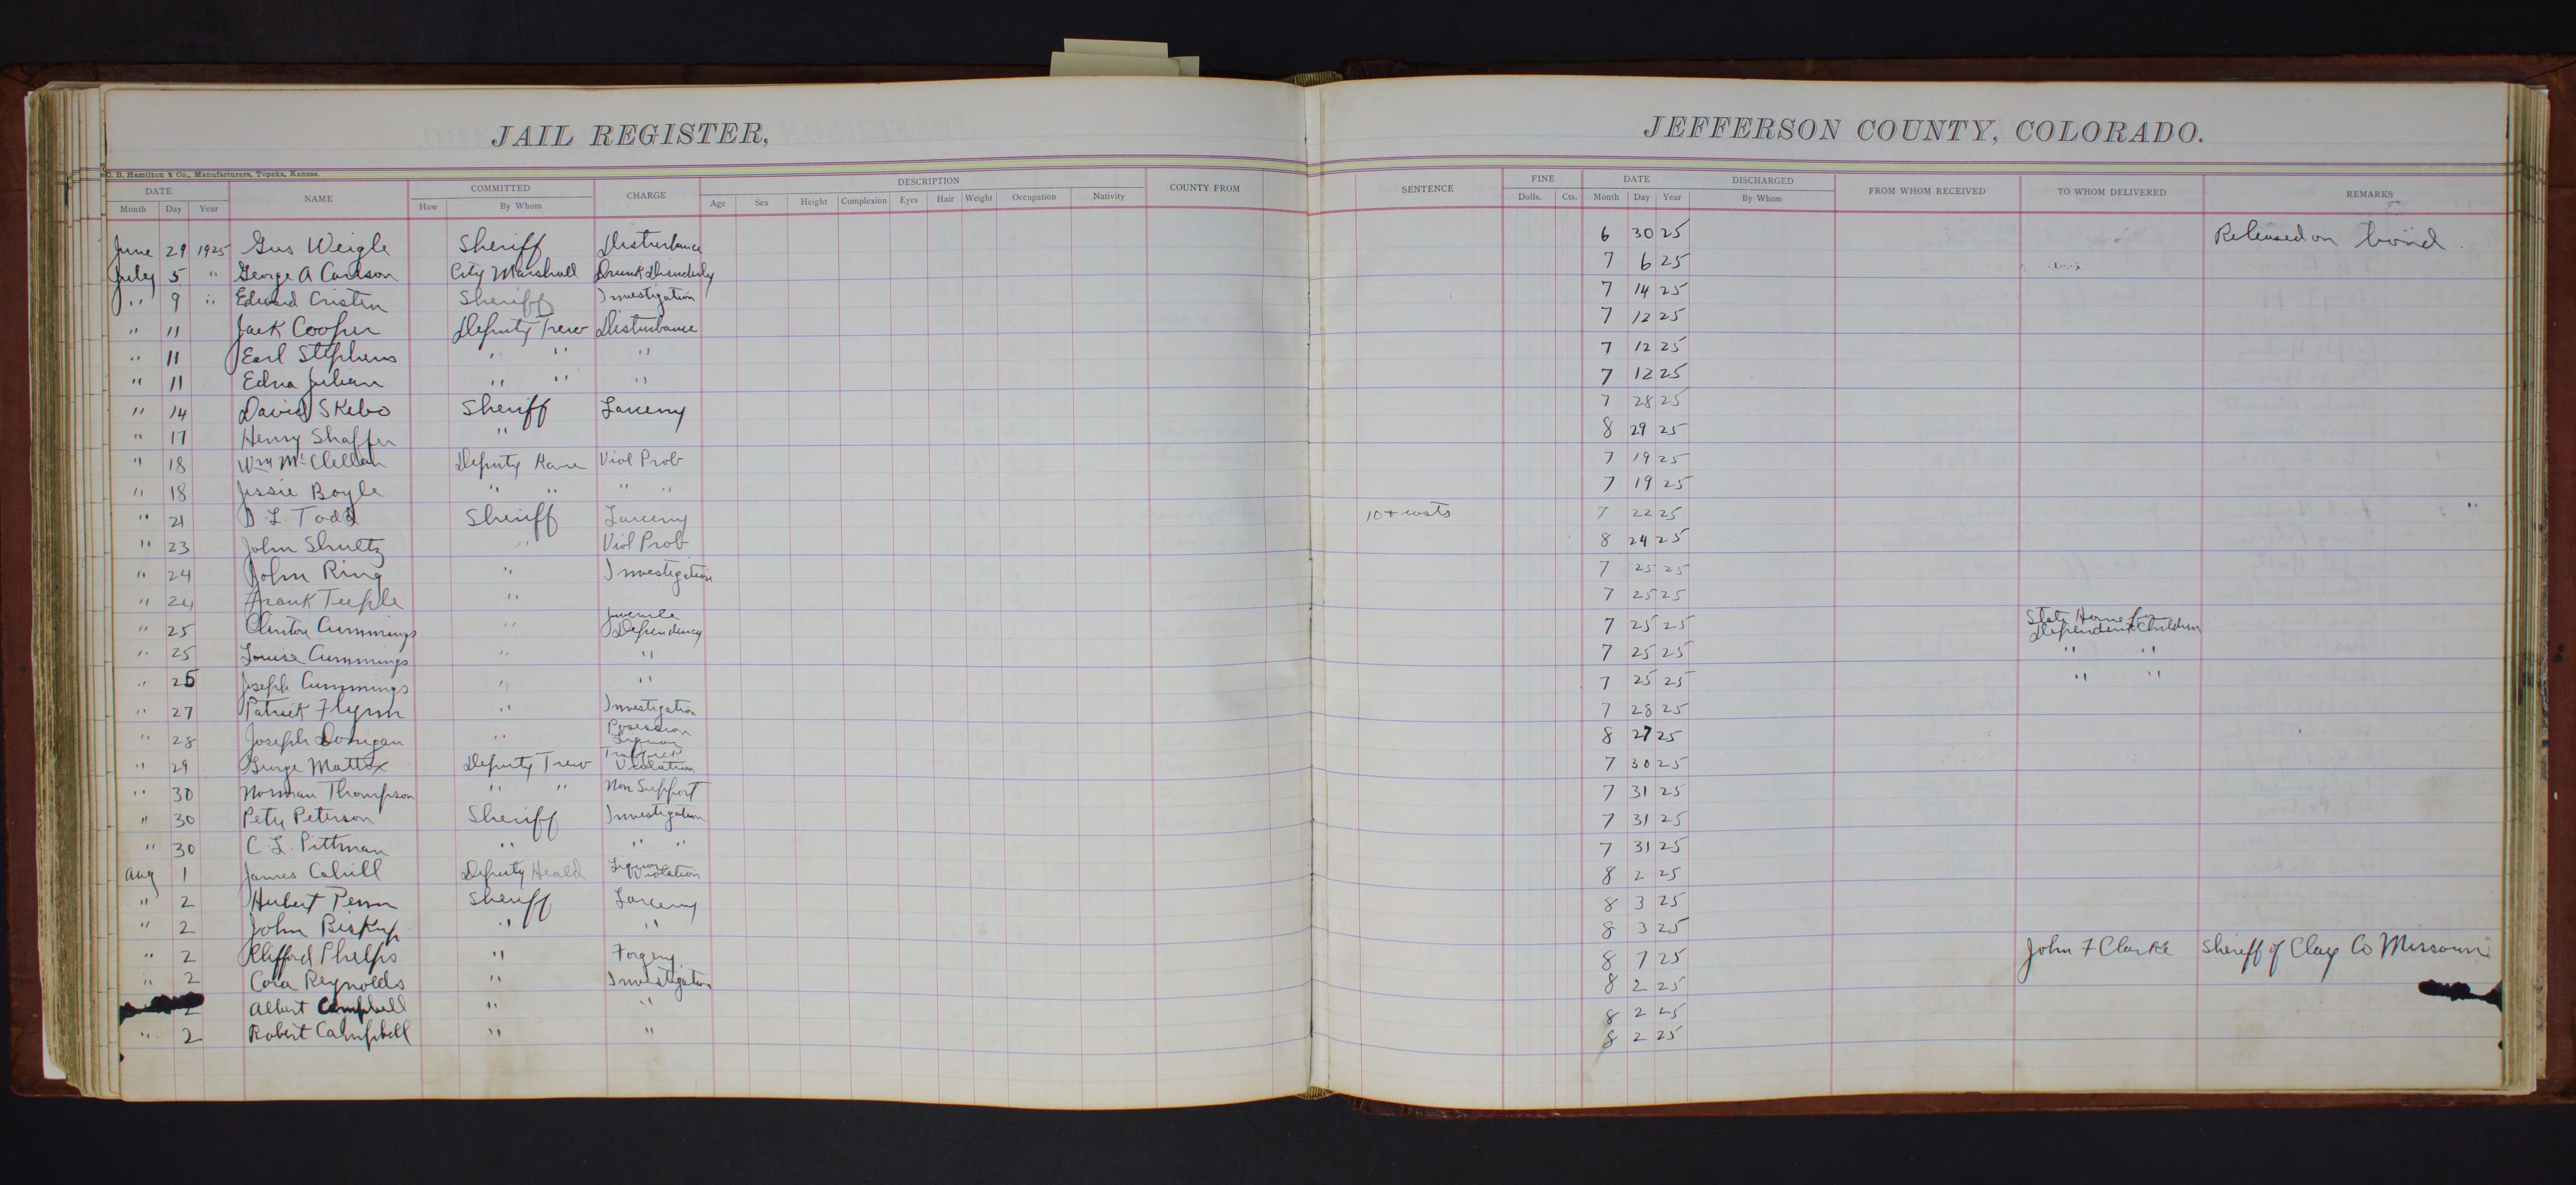 JAIL REGISTER, JEFFERSON COUNTY, COLORADO.
C. B. Hamilton & Co., Manufacturers, Topeka, Kansas.
DATE NAME COMMITTED CHARGE DESCRIPTION COUNTY FROM SENTENCE FINE DATE DISCHARGED FROM WHOM RECEIVED TO WHOM DELIVERED REMARKS
Month Day Year How By Whom Age Sex Height Complexion Eyes Hair Weight Occupation Nativity Dolls. Cts. Month Day Year By Whom
June 29 1925 Gus Weigle Sheriff Disturbance 6 30 25 Released on bond
July 5 " George A Carlson City Marshall Drunk Disorderly 7 6 25
" 9 " Edward Cristen Sheriff Investigation 7 14 25
" 11 Jack Cooper Deputy Trew Disturbance 7 12 25
" 11 Earl Stephens " " " 7 12 25
" 11 Edna Julian " " " 7 12 25
" 14 David Skebo Sheriff Larceny 7 28 25
" 17 Henry Shaffer " 8 29 25
" 18 Wm McClellan Deputy Kane Viol Prob 7 19 25
" 18 Jessie Boyle " " " " 7 19 25
" 21 D. L. Todd Sheriff Larceny 10 + costs 7 22 25
" 23 John Shultz " Viol Prob 8 24 25
" 24 John Ring " Investigation 7 25 25
" 24 Frank Teeple " 7 25 25
" 25 Clinton Cummings " Juvenile Dependency 7 25 25 State Home for Dependent Children
" 25 Louise Cummings " " 7 25 25 " "
" 25 Joseph Cummings " " 7 25 25 " "
" 27 Patrick Flynn " Investigation 7 28 25
" 28 Joseph Donigan " Posession Liquor 8 27 25
" 29 George Mattox Deputy Trew Traffick Violation 7 30 25
" 30 Norman Thompson " " Non Support 7 31 25
" 30 Pete Peterson Sheriff Investigation 7 31 25
" 30 C. L. Pittman " " " 7 31 25
Aug 1 James Cahill Deputy Heald Liquor Violation 8 2 25
" 2 Hubert Penn Sheriff Larceny 8 3 25
" 2 John Biskup " " 8 3 25
" 2 Clifford Phelps " Forgery 8 7 25 John F Clarke Sheriff of Clay Co Missouri
" 2 Cora Reynolds " Investigation 8 2 25
2 Albert Campbell " " 8 2 25
" 2 Robert Campbell " " 8 2 25